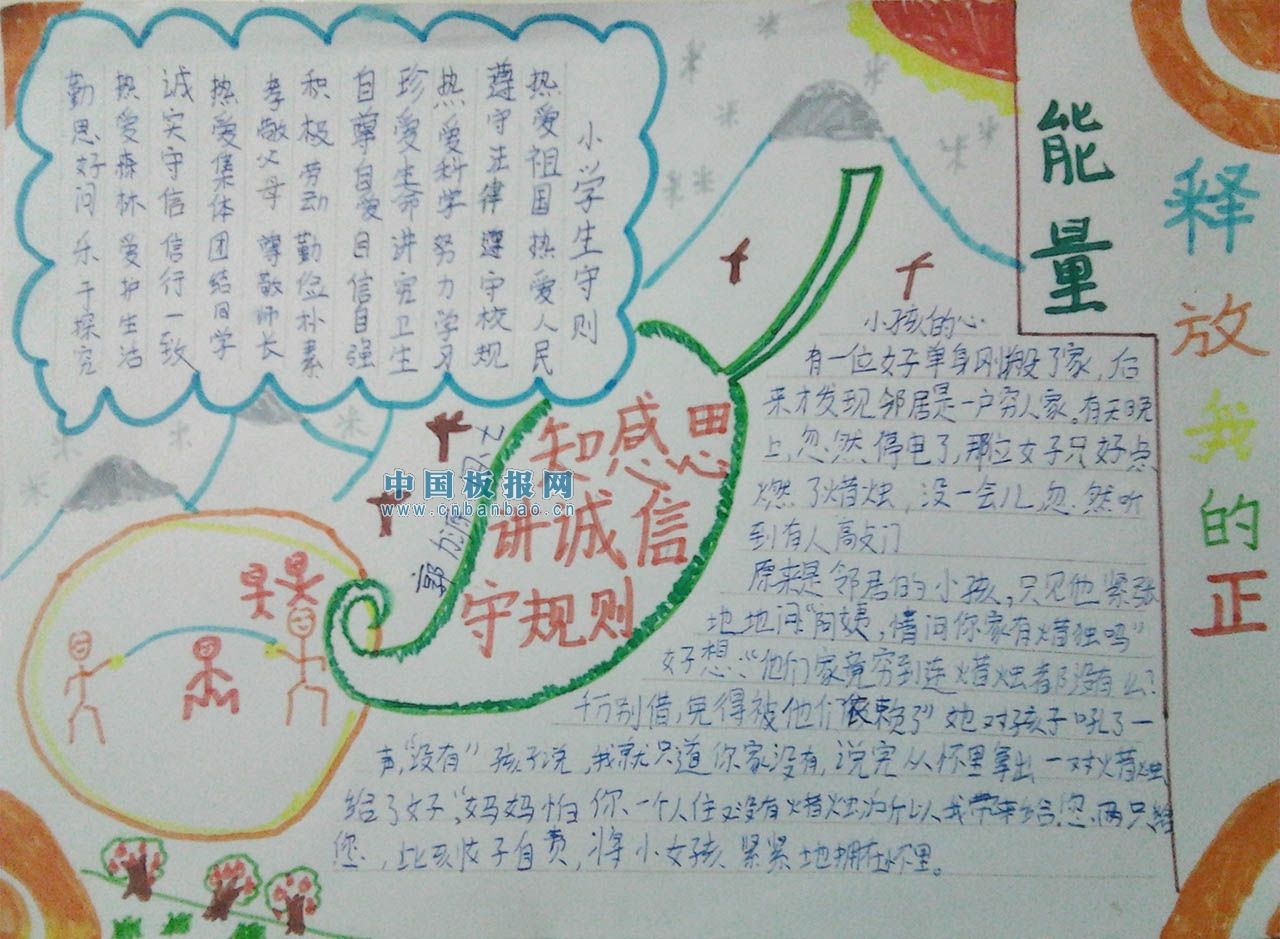 释放我的正
能量
小学生守则
热爱祖国 热爱人民
遵守法律 遵守校规
热爱科学 努力学习
珍爱生命 讲究卫生
自尊自爱 自信自强
积极劳动 勤俭朴素
孝敬父母 尊敬师长
热爱集体 团结同学
诚实守信 信行一致
热爱森林 爱护生活
勤思好问 乐于探究
知感恩
讲诚信
守规则
中国板报网
www.cnbanbao.cn
小孩的心
有一位女子单身刚搬了家,后
来才发现邻居是一户穷人家。有天晚
上,忽然停电了,那位女子只好点
燃了蜡烛,没一会儿,忽然听
到有人高攴门
原来是邻居的小孩,只见他紧张
地地问:“阿姨,情问你家有蜡烛吗”
好想:“他们家竟穷到连蜡烛都没有么?
千万别借,免得被他们依赖了”她对孩子吼了一
声,“没有”孩子说,我就只道你家没有,说完从怀里拿出一对蜡烛
给了女子“,妈妈怕你一个人住又没有蜡烛,所以我带来给您两只给
您,此刻女子自责,将小女孩紧紧地拥在怀里。